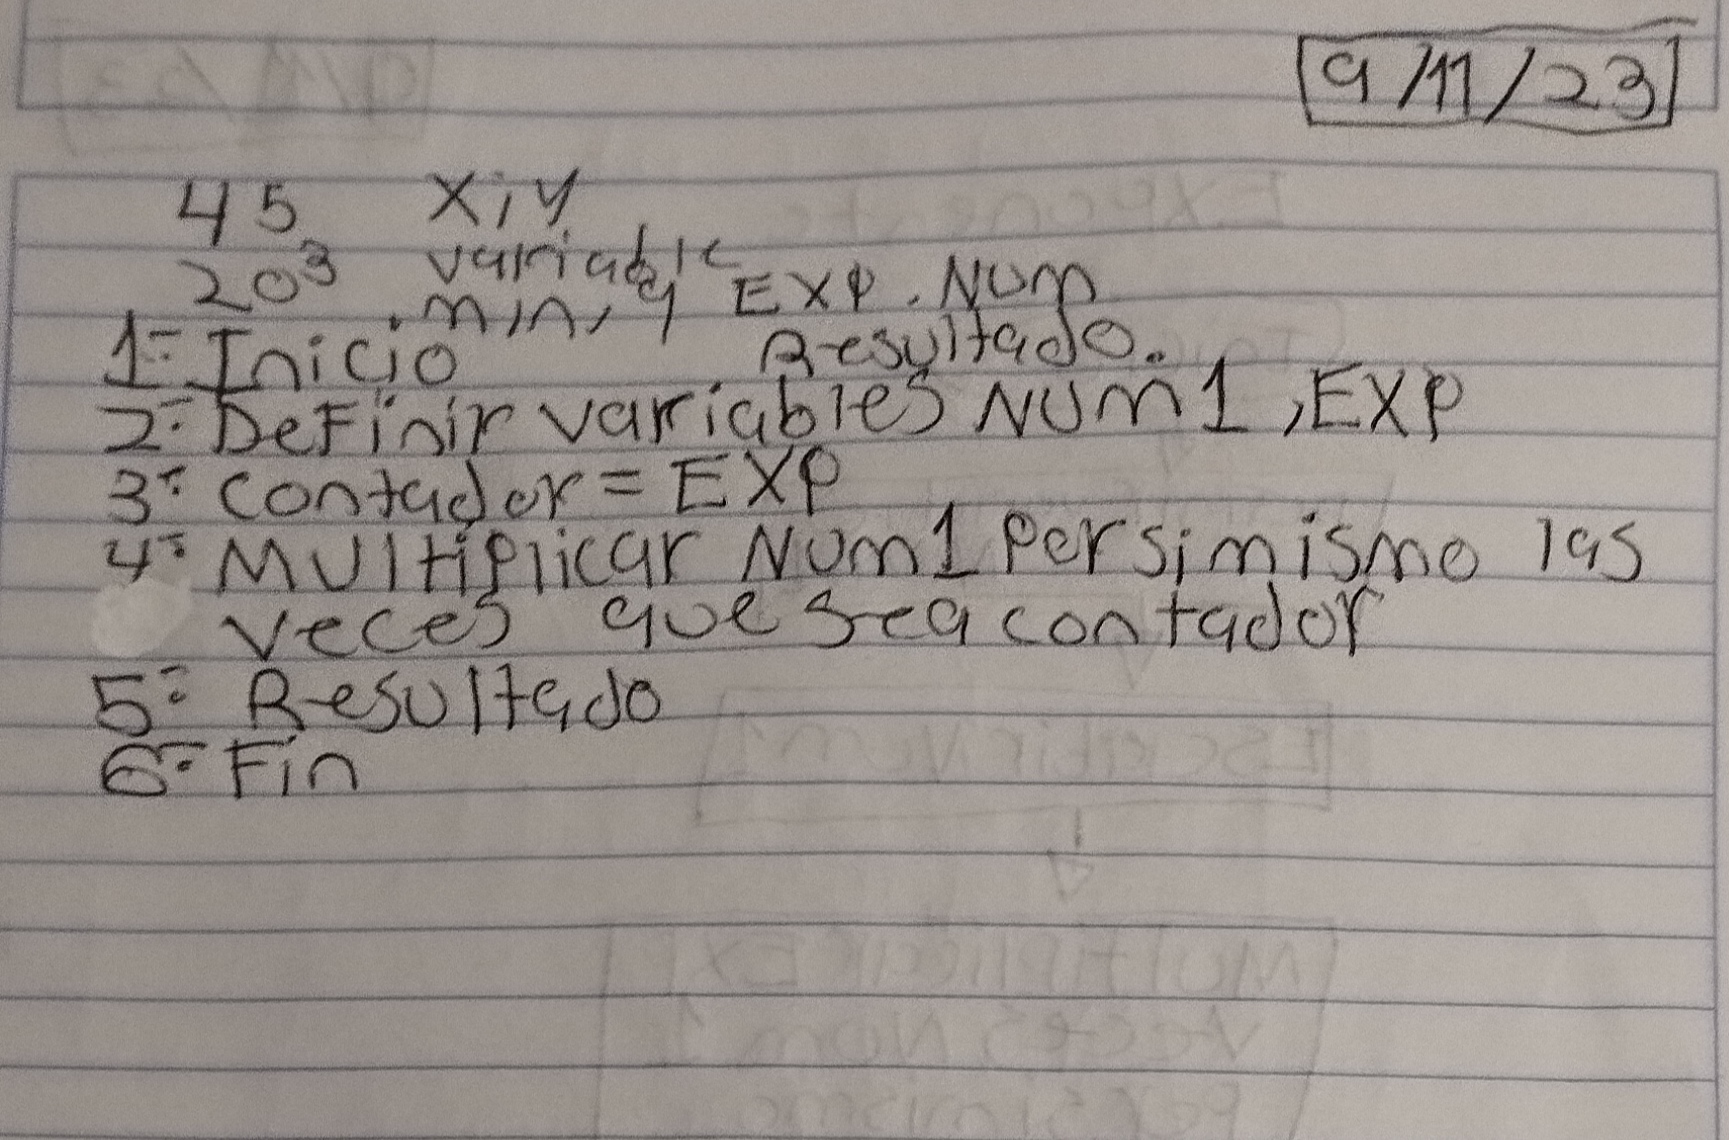 9/11/23
45 X,Y
20³ variable
min, y EXP. Num
1- Inicio Resultado.
2- Definir variables Num1, EXP
3- contador = EXP
4- Multiplicar Num1 Persimismo las
veces que sea contador
5- Resultado
6- Fin